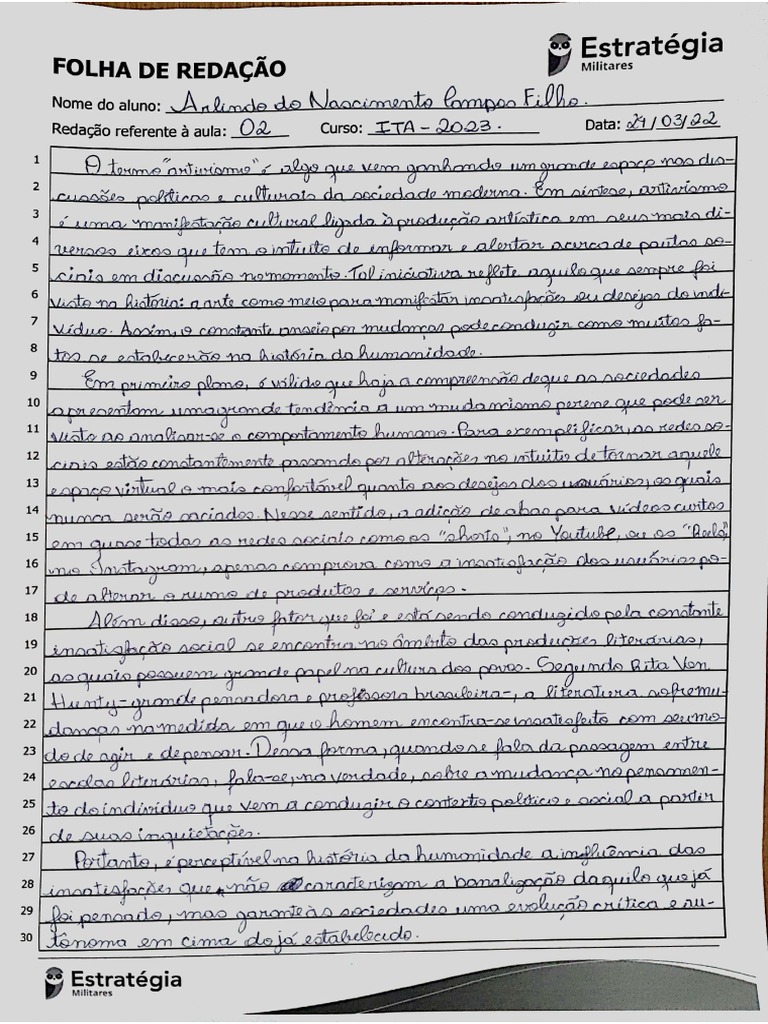 Estratégia
Militares
FOLHA DE REDAÇÃO
Nome do aluno: Arlindo do Nascimento Campos Filho.
Redação referente à aula: 02 Curso: ITA - 2023. Data: 29/03/22
1 O termo "artivismo" é algo que vem ganhando um grande espaço nas dis-
2 cussões políticas e culturais da sociedade moderna. Em síntese, artivismo
3 é uma manifestação cultural ligada à produção artística em seus mais di-
4 versos eixos que tem o intuito de informar e alertar acerca de pautas so-
5 ciais em discussão no momento. Tal iniciativa reflete aquilo que sempre foi
6 visto na história: a arte como meio para manifestar insatisfações ou desejos do indi-
7 víduo. Assim, o constante anseio por mudanças pode conduzir como muitos fa-
8 tos se estabecerão na história da humanidade.
9 Em primeiro plano, é válido que haja a compreensão de que as sociedades
10 apresentam uma grande tendência a um mudamismo perene que pode ser
11 visto ao analisar-se o comportamento humano. Para exemplificar, as redes so-
12 ciais estão constantemente passando por alterações no intuito de tornar aquele
13 espaço virtual o mais confortável quanto aos desejos dos usuários, os quais
14 nunca serão saciados. Nesse sentido, a adição de abas para vídeos curtos
15 em quase todas as redes sociais como os "shorts", no Youtube, ou os "Reels",
16 no Instagram, apenas comprova como a insatisfação dos usuários po-
17 de alterar o rumo de produtos e serviços.
18 Além disso, outro fator que foi e está sendo conduzido pela constante
19 insatisfação social se encontra no âmbito das produções literárias,
20 as quais possuem grande papel na cultura dos povos. Segundo Rita Von
21 Hunty - grande pensadora e professora brasileira -, a literatura sofre mu-
22 danças na medida em que o homem encontra-se insatisfeito com seu mo-
23 do de agir e de pensar. Dessa forma, quando se fala da passagem entre
24 escolas literárias, fala-se, na verdade, sobre a mudança no pensamen-
25 to do indivíduo que vem a conduzir o contexto político e social a partir
26 de suas inquietações.
27 Portanto, é perceptível na história da humanidade a influência das
28 insatisfações que não caracterizam a banalização daquilo que já
29 foi pensado, mas garante às sociedades uma evolução crítica e au-
30 tônoma em cima do já estabelecido.
Estratégia
Militares